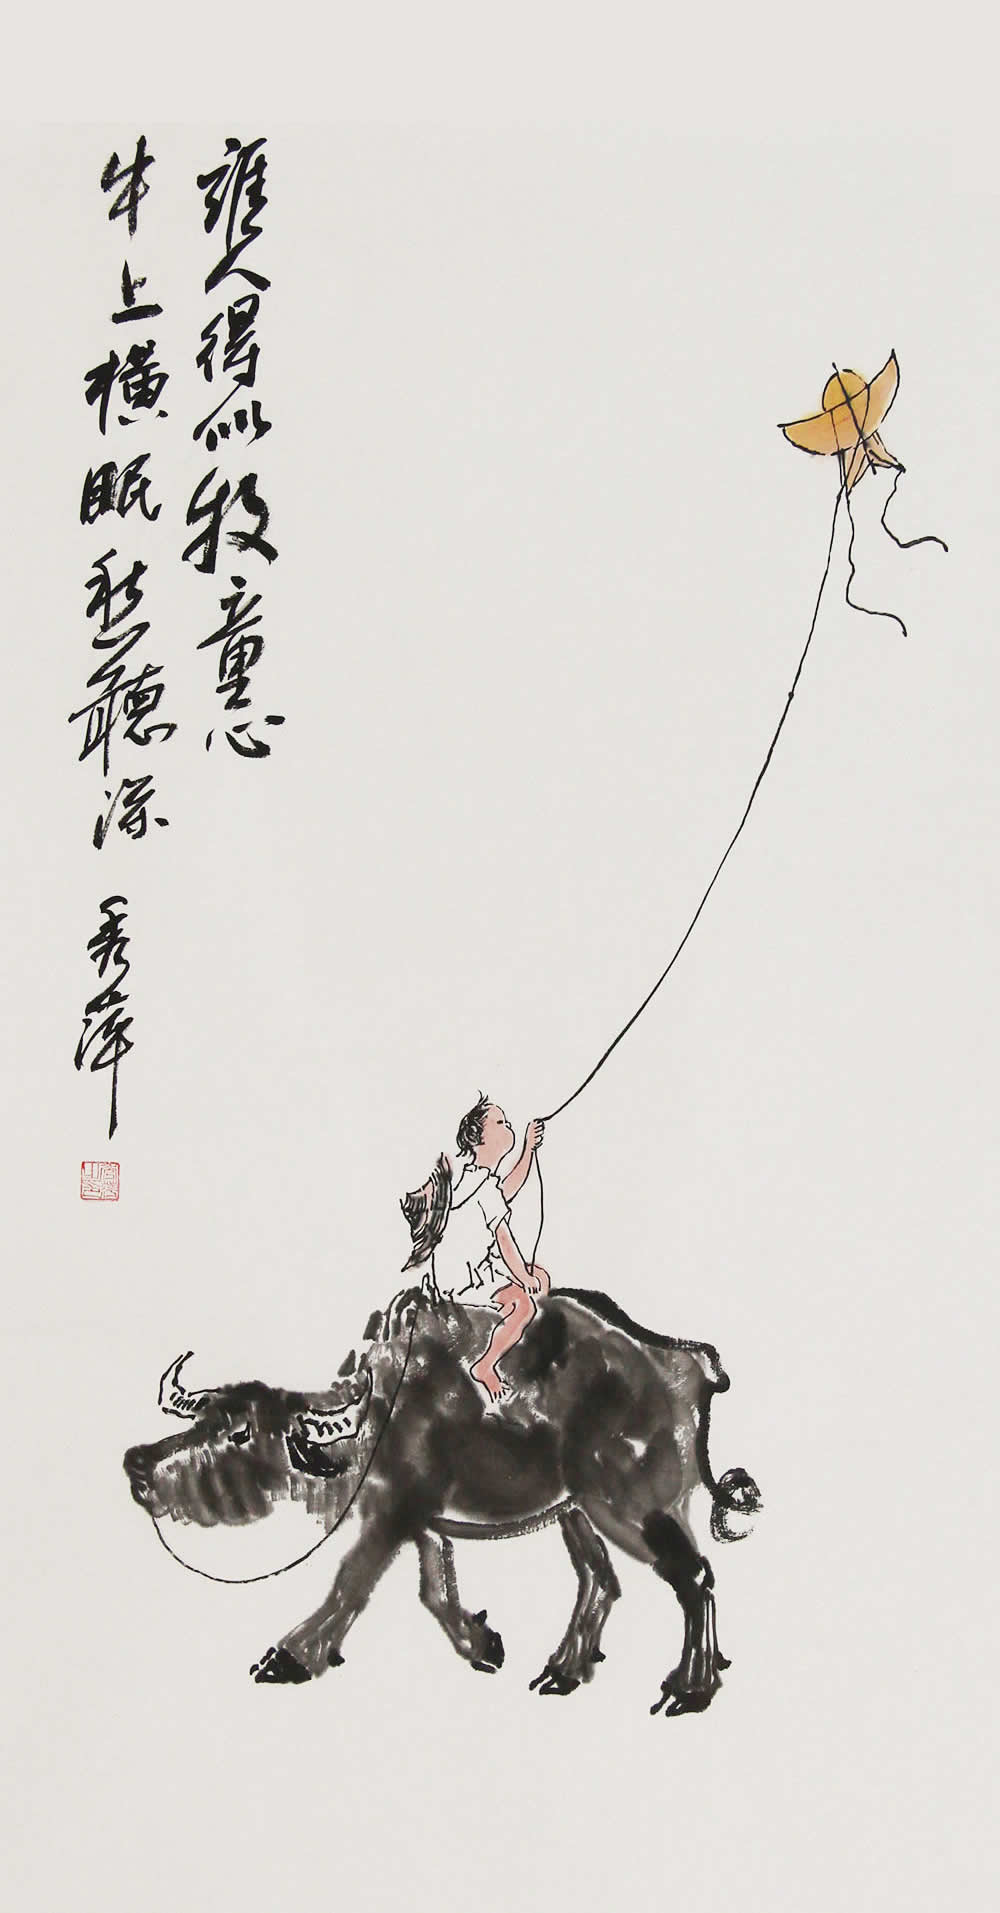 谁人得似牧童心
牛上横眠秋听深
秀萍